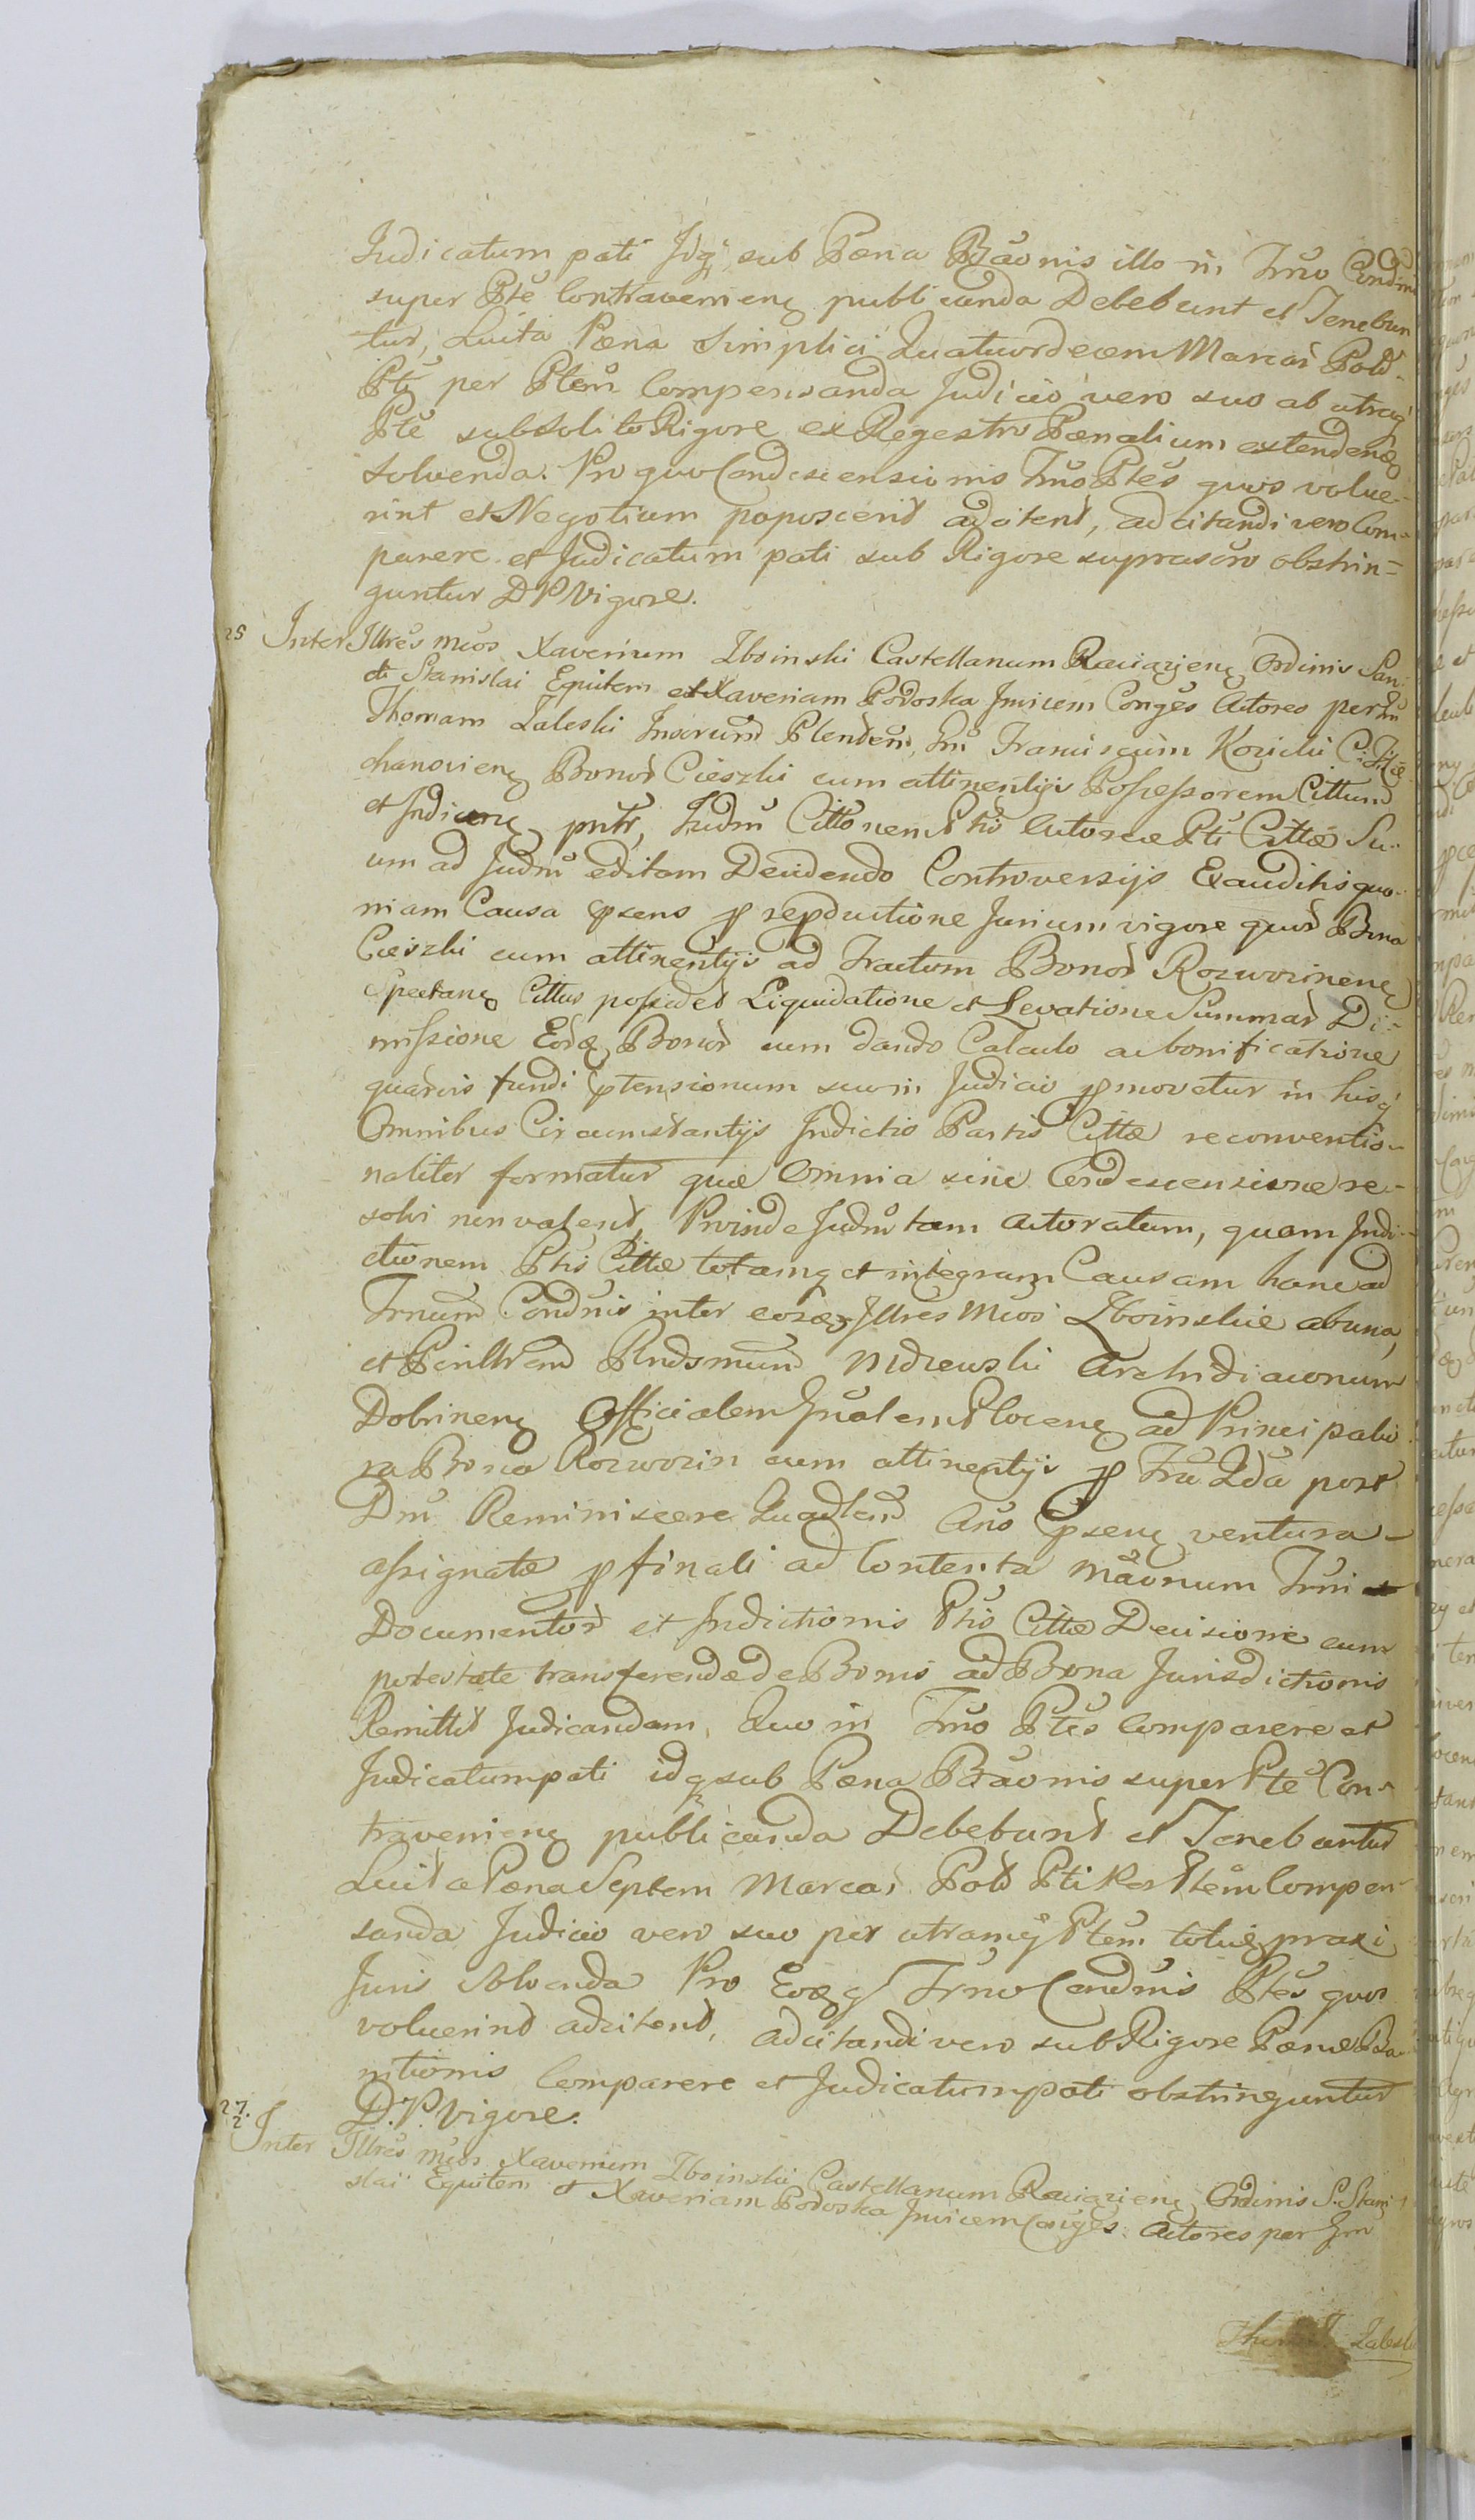 Judicatum pati Idq sub Pæna Bãonis illo in Trno Condnis
super Pte Contravenienq publicanda Debebunt et Tenebun
tur, Luita Pæna simplici Quatuordecem Marcar Pold
Pti per Ptem Compensanda Judicio vero suo ab utraq
Pte sub solito Rigore ex Regestro Pænalium extendenq
solvenda. Pro quo Condescensionis Trno Ptes quos volue-
rint et Negotium poposcerit adcitent, adcitandi vero Com-
parere et Judicatum pati sub Rigore suprascro obstrin=
guntur D P Vigore.
25 Inter Illres Mcos Xaverium Zboinski Castellanum Raciązienq Ordinis San-
cti Stanislai Equitem et Xaveriam Podoska Invicem Conges Actores per Gm
Thomam Zaleski Insorum Plendum, Gm Franciscum Kozicki C:
chanovienq Bonor Cieszki cum attinentijs Possessorem Cittum
et Indicenq pntr, Judm Cittonem Ptis Actoreæ Pti Cittæ Su-
um ad Judm editam Decidendo Controversijs Exauditis quo-
niam Causa psens p repductione Jurium vigore quor Bona
Cieszki cum attinentijs ad Tractum Bonor Rozwozinenq
Spectanq Cittus possidet Liquidatione et Levatione Summar Di-
missione Eorq Bonor cum dando Calculo ac bonificatione
quarvis fundi ptensionum suo in Judicio pmovetur in hisq
Omnibus Circumstantijs Indictio Partis Cittæ reconventio-
naliter formatur quæ Omnia sine Condescensione re-
solvi non valent, Proinde Judm tam Actoratum, quam Indi-
ctionem Ptis Cittæ totamq et integram Causam hanc ad
Trnum Condnis inter eosdq Illres Mcos Zboinskie ab una,
et Perillrem Rndsmum Mdzewski Archidiaconum
Dobrinenq Officialem Gnalem Plocenq ad Principalio
ra Bona Rozwozin cum attinentijs p Fra 2da post
Dni Reminiscere Quadlem Ano psenq ventura
assignatæ p finali ad Contenta Mãonum Trni
Documentor et Indictionis Ptis Cittæ Decisione cum
potestate transferendæ de Bonis ad Bona Jurisdictionis
Remittit Judicandam, Quo in Trno Ptes Comparere et
Judicatum pati idq sub Pæna Bãonis super Pte Con-
travenienq publicanda Debebunt et Tenebuntur
Luita Pæna Septem Marcar Pold Pti Per Ptem Compen-
sanda Judicio vero suo per utramq Ptem toties praxi
Juris solvenda Pro Eoq Trno Condnis Ptes quos
voluerint adcitent, adcitandi vero sub Rigore Pænæ Ba-
nitionis Comparere et Judicatum pati obstringuntur
D. P. Vigore.
27.
2
Inter Illres Mcos Xaverium Zboinski Castellanum Raciązienq Ordinis S. Stani
slai Equitem et Xaveriam Podoska Invicem Conges Actores per Gm
Zaleski